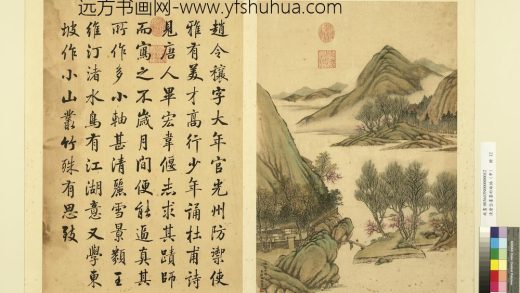 远方书画网-www.yfshuhua.com
趙令穰字大年官光州防禦使
雅有美才高行少年誦杜甫詩
見唐人畢宏韋偃志求其蹟師
而寫之不歲月間便能逼真其
所作多小軸甚清麗雪景類王
維汀渚水鳥有江湖意又學東
坡作小山叢竹殊有思致